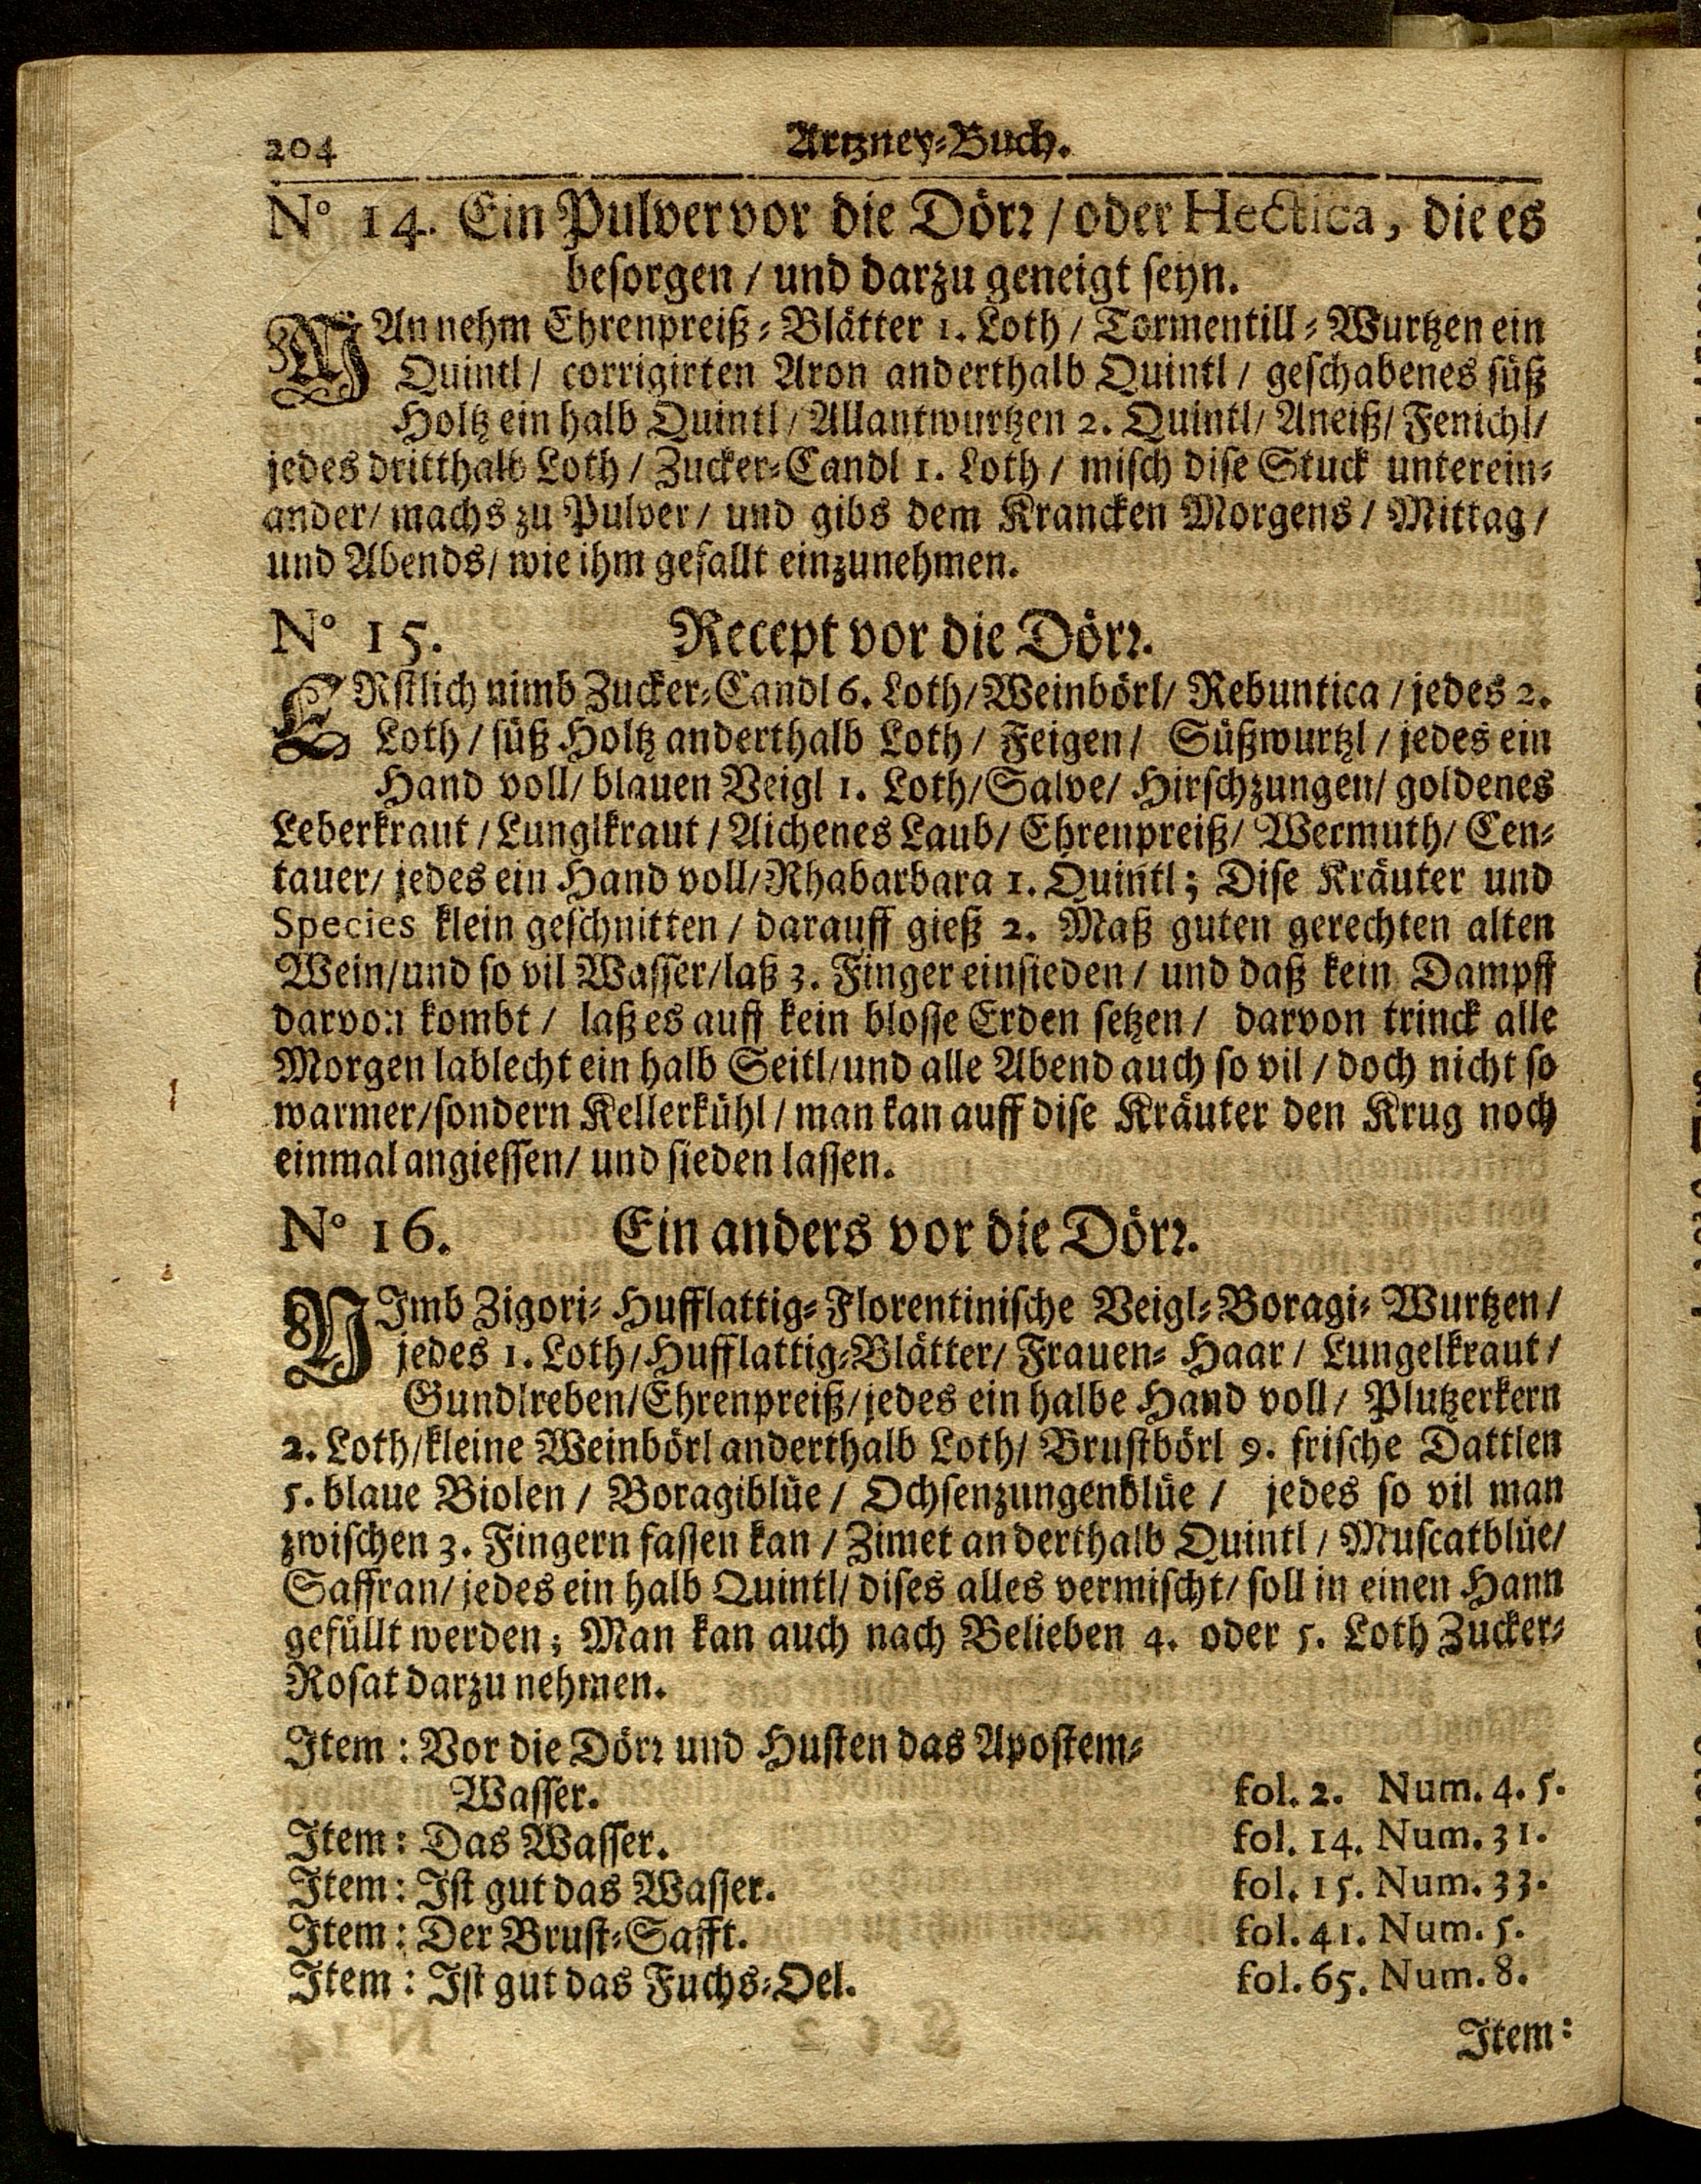 204 Artzney-Buch.
N° 14. Ein Pulver vor die Dörꝛ / oder Hectica, die es
besorgen / und darzu geneigt seyn.
MAn nehm Ehrenpreiß-Blätter 1. Loth / Tormentill-Wurtzen ein
Quintl / corrigirten Aron anderthalb Quintl / geschabenes süß
Holtz ein halb Quintl / Allantwurtzen 2. Quintl / Aneiß / Fenichl /
jedes dritthalb Loth / Zucker-Candl 1. Loth / misch dise Stuck unterein-
ander / machs zu Pulver / und gibs dem Krancken Morgens / Mittag /
und Abends / wie ihm gefallt einzunehmen.
N° 15. Recept vor die Dörꝛ.
ERstlich nimb Zucker-Candl 6. Loth / Weinbörl / Rebuntica / jedes 2.
Loth / süß Holtz anderthalb Loth / Feigen / Süßwurtzl / jedes ein
Hand voll / blauen Veigl 1. Loth / Salve / Hirschzungen / goldenes
Leberkraut / Lunglkraut / Aichenes Laub / Ehrenpreiß / Wermuth / Cen-
tauer / jedes ein Hand voll / Rhabarbara 1. Quintl; Dise Kräuter und
Species klein geschnitten / darauff gieß 2. Maß guten gerechten alten
Wein / und so vil Wasser / laß 3. Finger einsieden / und daß kein Dampff
darvon kombt / laß es auff kein blosse Erden setzen / darvon trinck alle
Morgen lablecht ein halb Seitl / und alle Abend auch so vil / doch nicht so
warmer / sondern Kellerkühl / man kan auff dise Kräuter den Krug noch
einmal angiessen / und sieden lassen.
N° 16. Ein anders vor die Dörꝛ.
NImb Zigori- Hufflattig- Florentinische Veigl- Boragi- Wurtzen /
jedes 1. Loth / Hufflattig-Blätter / Frauen-Haar / Lungelkraut /
Gundlreben / Ehrenpreiß / jedes ein halbe Hand voll / Plutzerkern
2. Loth / kleine Weinbörl anderthalb Loth / Brustbörl 9. frische Dattlen
5. blaue Violen / Boragiblüe / Ochsenzungenblüe / jedes so vil man
zwischen 3. Fingern fassen kan / Zimet anderthalb Quintl / Muscatblüe /
Saffran / jedes ein halb Quintl / dises alles vermischt / soll in einen Hann
gefüllt werden; Man kan auch nach Belieben 4. oder 5. Loth Zucker-
Rosat darzu nehmen.
Item: Vor die Dörꝛ und Husten das Apostem-
Wasser. fol. 2. Num. 4. 5.
Item: Das Wasser. fol. 14. Num. 31.
Item: Ist gut das Wasser. fol. 15. Num. 33.
Item: Der Brust-Safft. fol. 41. Num. 5.
Item: Ist gut das Fuchs-Oel. fol. 65. Num. 8.
Item: